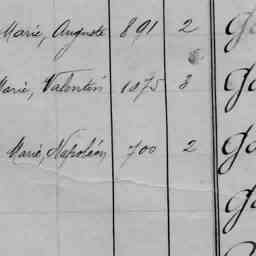 Marié, Auguste 891 2
Marié, Valentin 1075 3
Marié, Napoléon 700 2